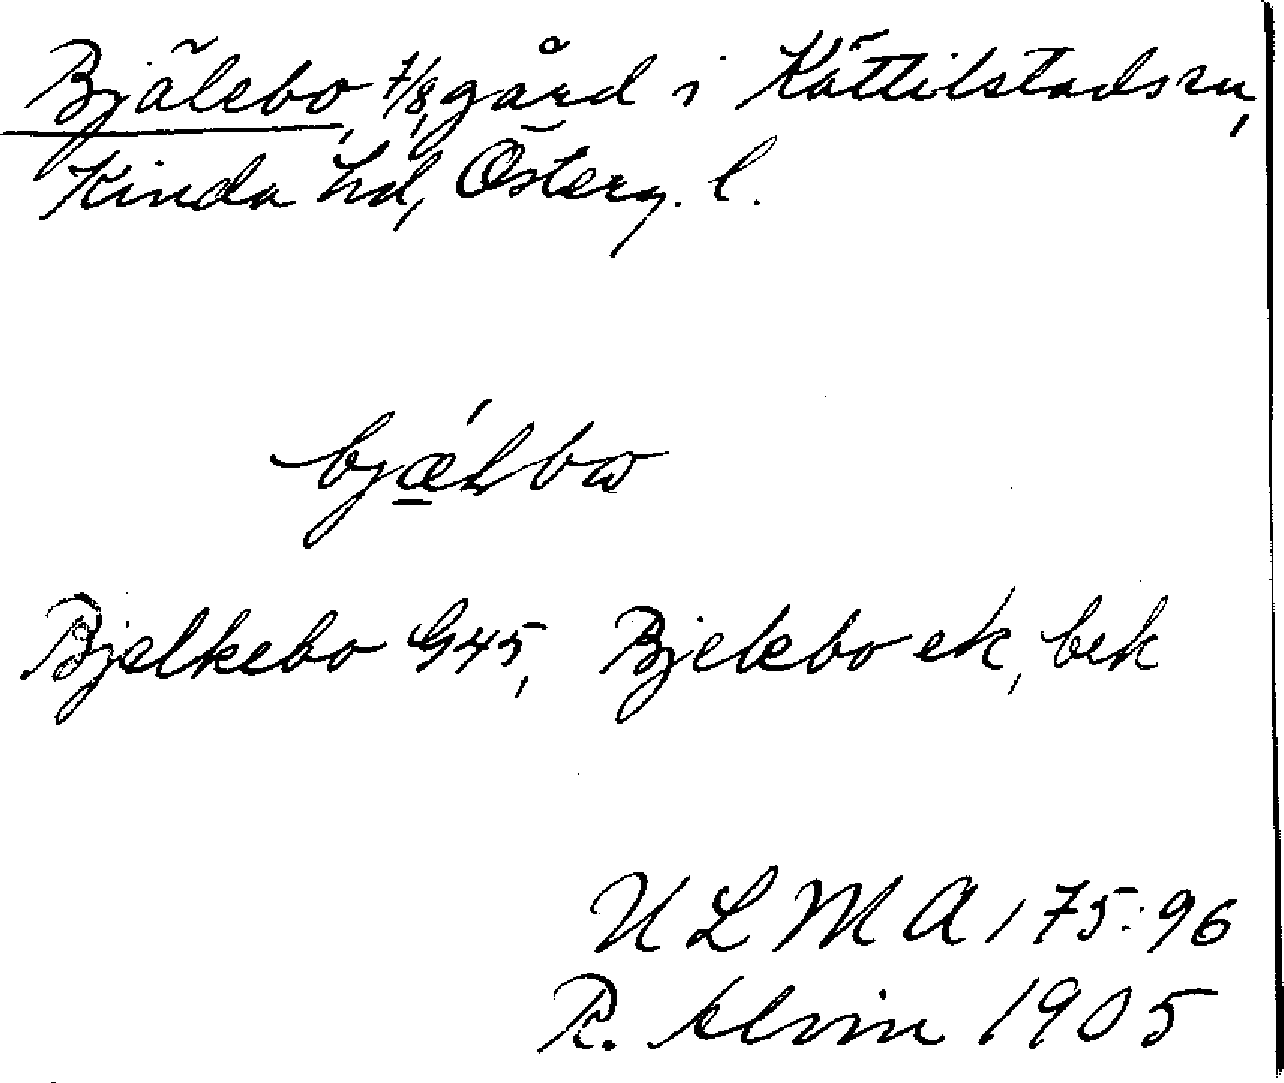 Bjälebo, 7/8, gård i Kättilstads sn,
Kinda hd, Österg. l.
bjǽlbω
Bjelkebo G45, Bjelebo ek, bek
ULMA 175:96
R. Alvin 1905